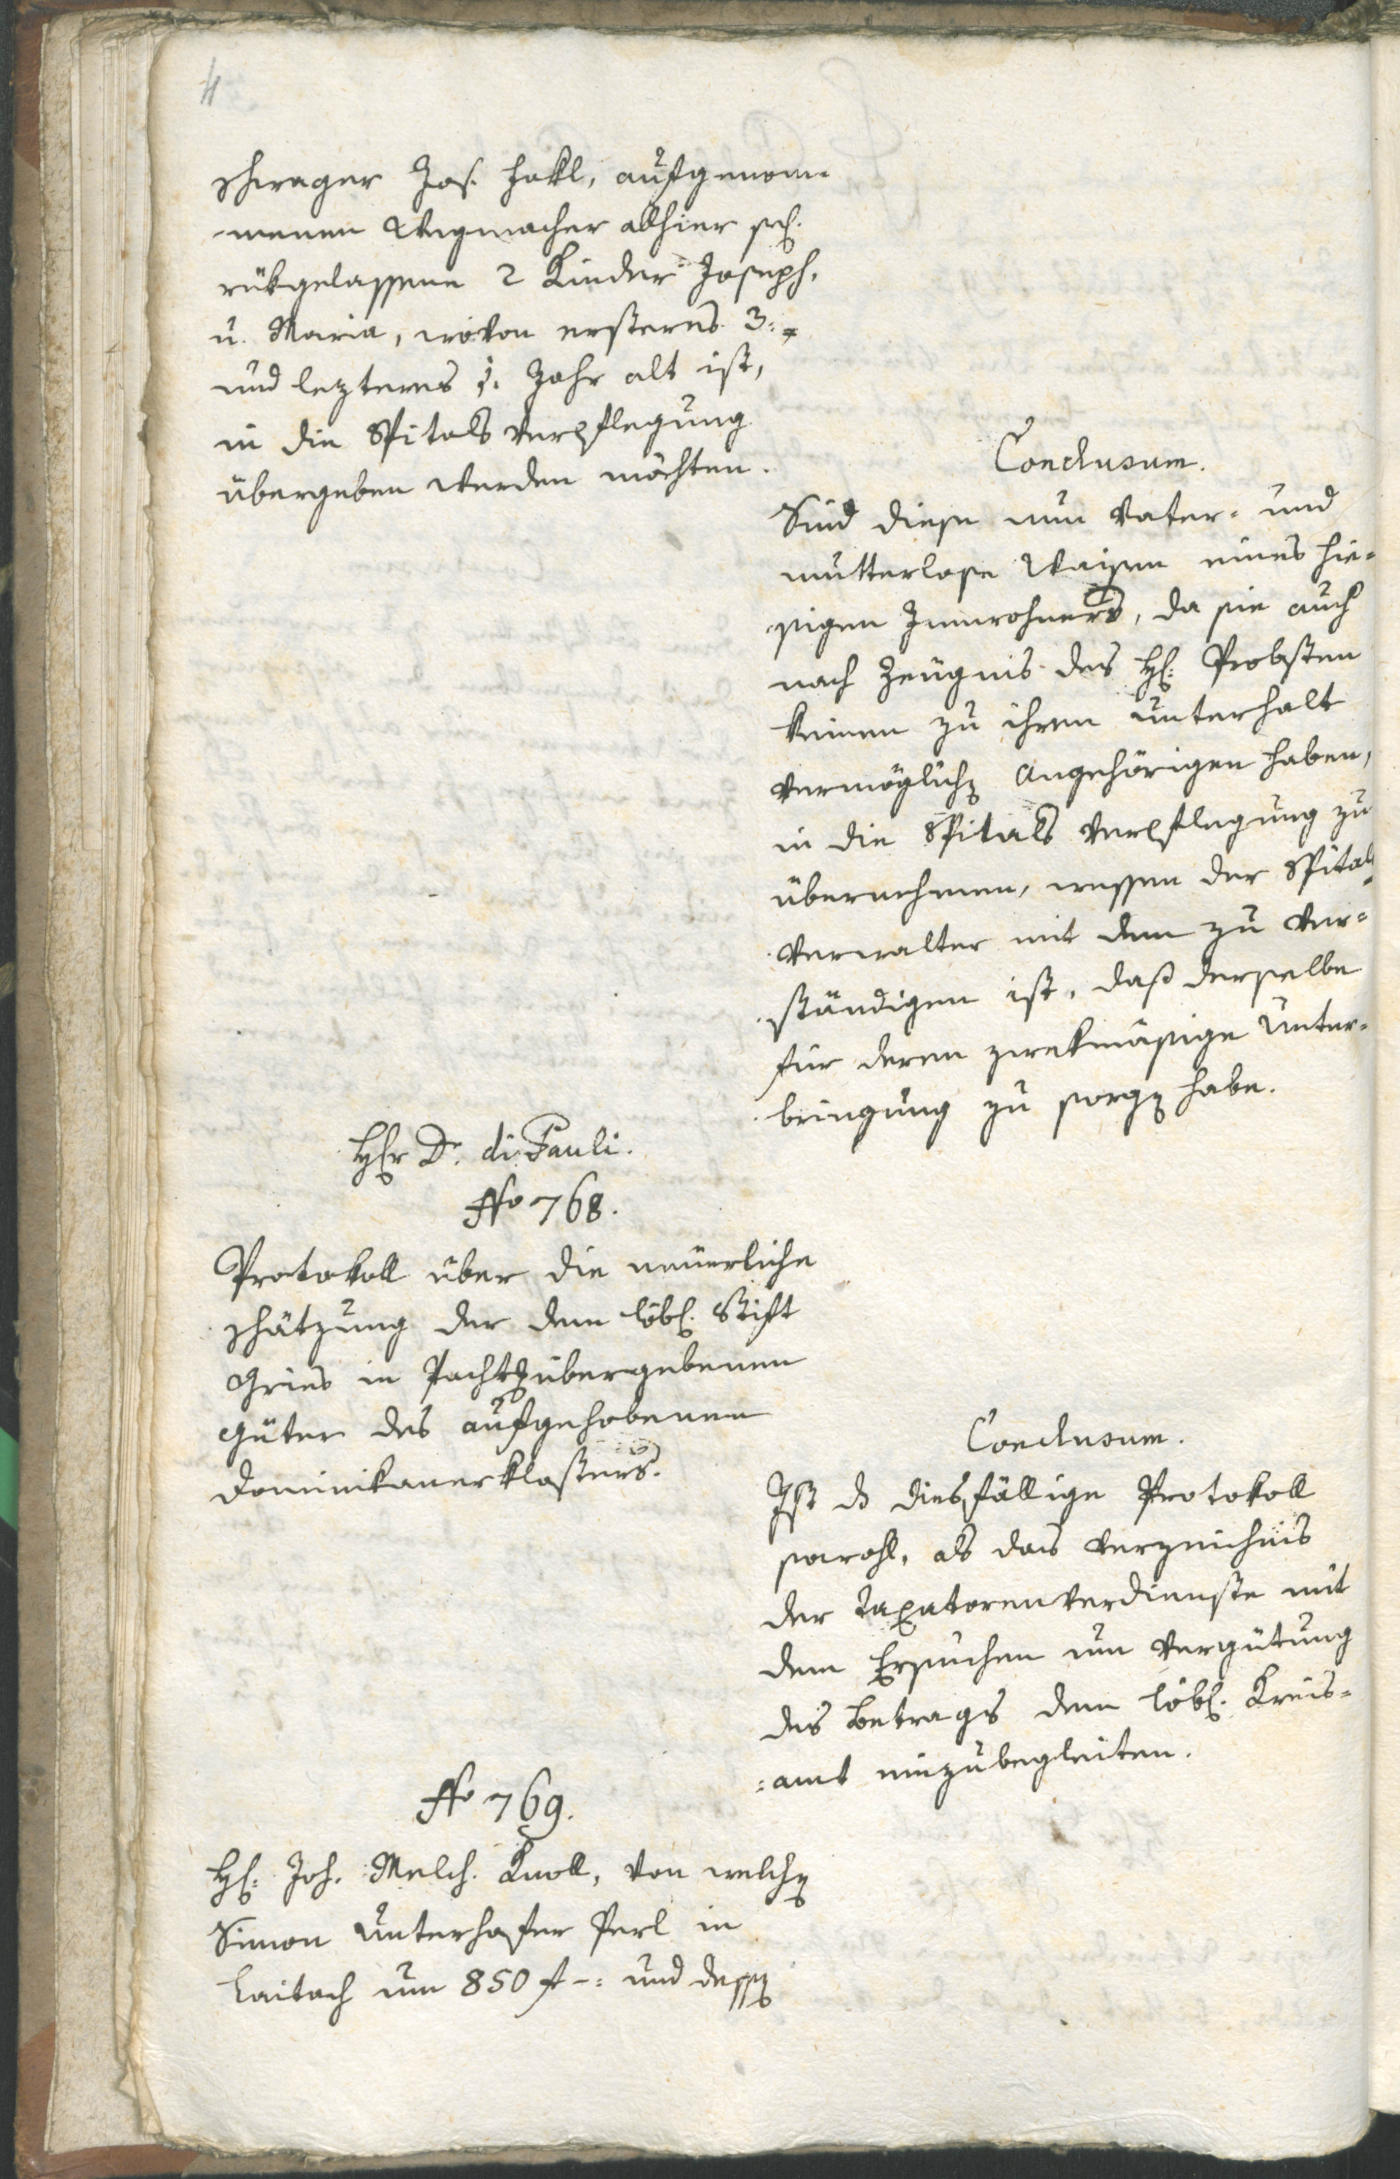 4
schwager Jos. Hakl, aufgenom-
-menen Wegmacher allhier sel.
rükgelassene 2 Kinder Joseph,
u. Maria, wovon ersteres 3:=
und lezteres 1. Jahr alt ist,
in die Spitals Verpflegung
übergeben werden möchten.
Conclusum.
Sind diese nun Vater- und
mutterlose Waisen eines hie-
sigen Innwohners, da sie auch
nach Zeugnis des H: Probsten
keinen zu ihrem Unterhalt
vermöglichen Angehörigen haben,
in die Spitals Verpflegung zu
übernehmen, wessen der Spital-
verwalter mit dem zu ver-
ständigen ist, daß derselbe
für deren zwekmäsige Unter-
bringung zu sorgen habe.
Hr Dr. di Pauli.
No 768.
Protokoll über die neuerliche
schätzung der dem löbl. Stift
Gries in Pacht übergebenen
Güter des aufgehobenen
Dominikanerklosters.
Conclusum.
Ist das diesfällige Protokoll
sowohl, als das Verzeichnis
der Taxatorenverdienste mit
dem Ersuchen um Vergütung
des Betrags dem löbl. Kreis-
=amt einzubegleiten.
No 769.
H: Joh. Melch. Knoll, von welchen
Simon Unterhofer Perl in
Laitach um 850 f -: und dessen